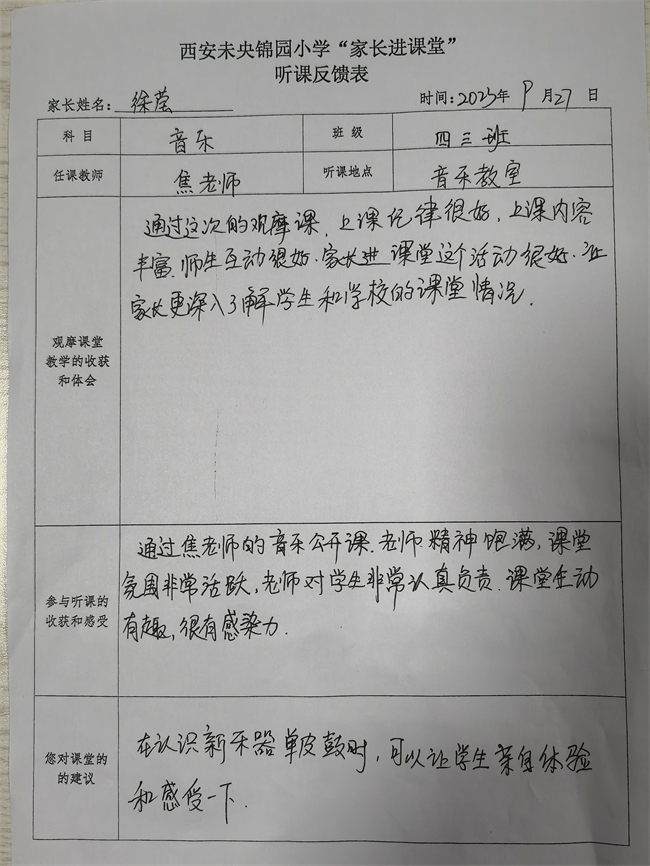 西安未央锦园小学“家长进课堂”
听课反馈表
家长姓名：徐莹 时间：2023年 9 月27 日
科 目 音乐 班 级 四三班
任课教师 焦老师 听课地点 音乐教室
通过这次的观摩课，上课纪律很好，上课内容
丰富.师生互动很好.家长进课堂这个活动很好.让
家长更深入了解学生和学校的课堂情况.
观摩课堂
教学的收获
和体会
通过焦老师的音乐公开课.老师精神饱满，课堂
氛围非常活跃，老师对学生非常认真负责.课堂生动
有趣，很有感染力.
参与听课的
收获和感受
在认识新乐器单皮鼓时，可以让学生亲自体验
和感受一下.
您对课堂的
的建议